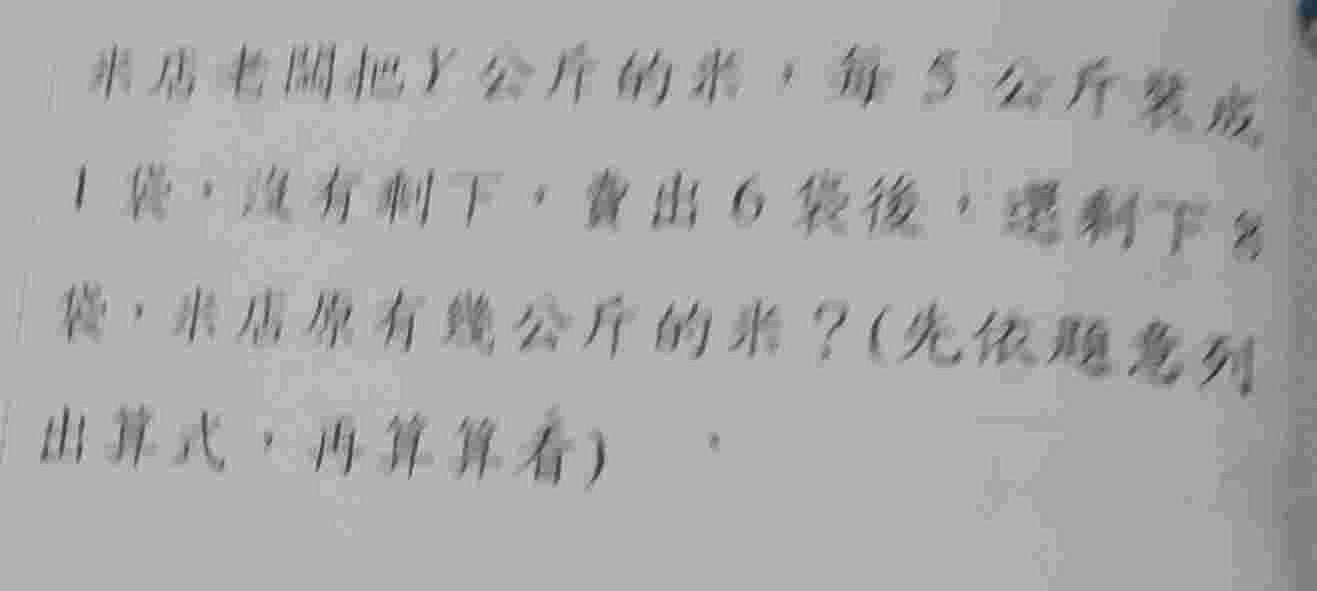 米店老闆把Y公斤的米，每5公斤裝成
1袋，沒有剩下，賣出6袋後，還剩下8
袋，米店原有幾公斤的米？(先依題意列
出算式，再算算看)